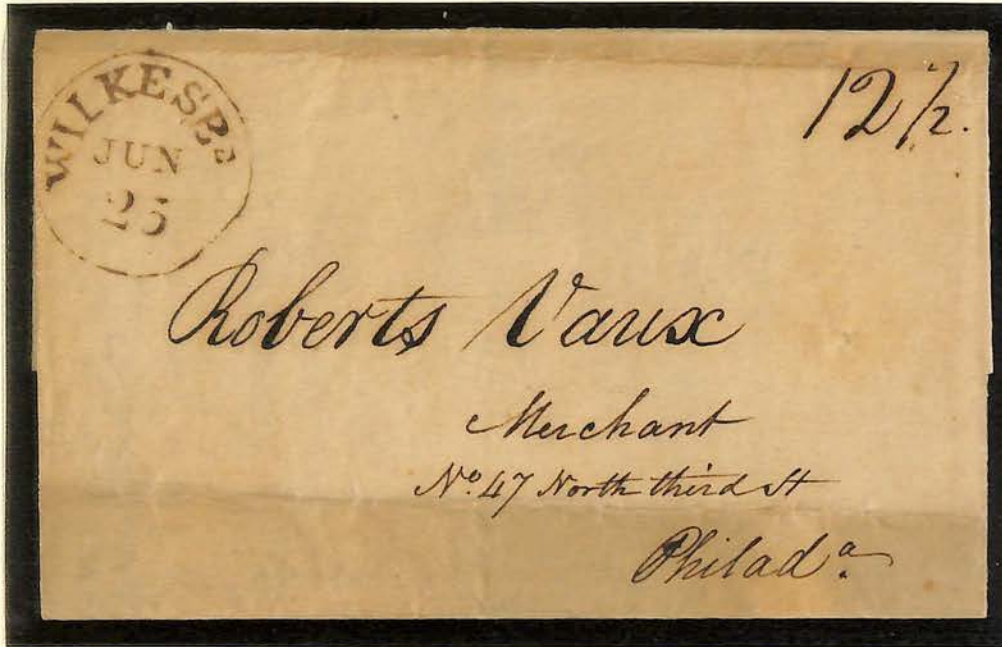 WILKESBa
JUN
25
12 1/2.
Roberts Vaux
Merchant
No. 47 North third St
Philada.